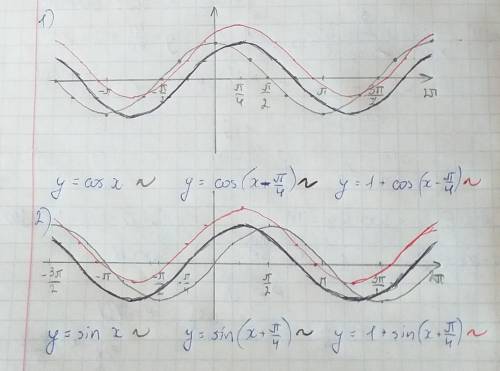 1)
-π -π/2 π/4 π/2 π 3π/2 2π
y = cos x ~ y = cos(x - π/4) ~ y = 1 + cos(x - π/4) ~
2)
-3π/2 -π -π/2 -π/4 π/2 π 3π/2 2π
y = sin x ~ y = sin(x + π/4) ~ y = 1 + sin(x + π/4) ~